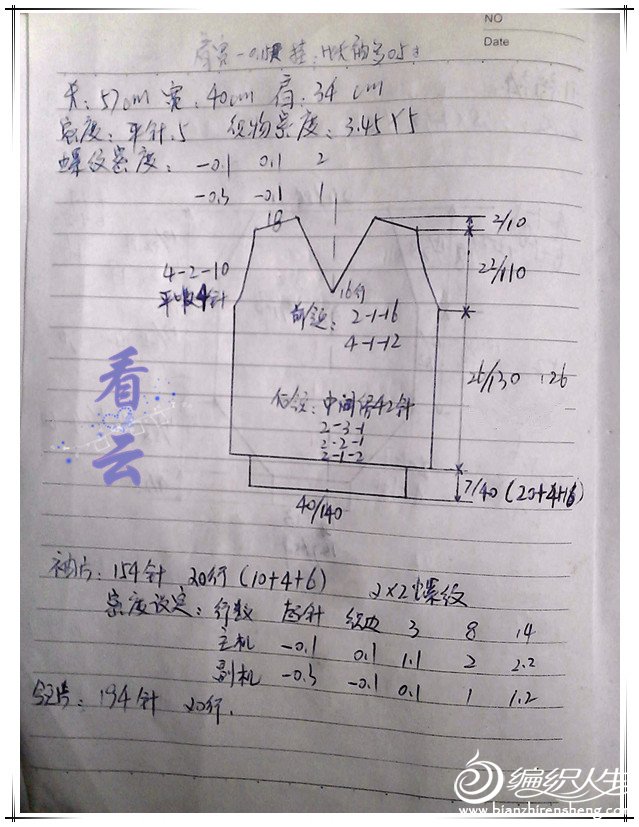 NO
Date
长:57cm 宽:40cm 肩:34cm
密度:平针.5 织物密度:3.45 Y5
螺纹密度: -0.1 0.1 2
-0.3 -0.1 1
18
2/10
4-2-10
平收4针
22/110
16行
前领: 2-1-16
4-1-12
26/130 :26
后领:中间停42针
2-3-1
2-2-1
2-1-2
7/40 (20+4+16)
40/140
看云
袖片:154针 20行(10+4+6) 2×2螺纹
密度设定:行数 起针 织边 3 8 14
主机 -0.1 0.1 1.1 2 2.2
副机 -0.3 -0.1 0.1 1 1.2
领片:194针 20行.
编织人生
www.bianzhirensheng.com